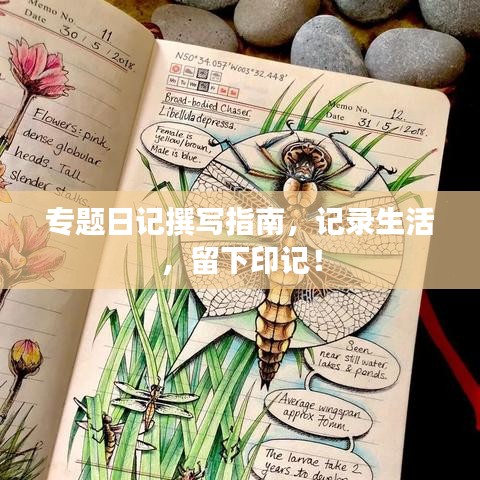 Memo No. 11
Date 30/5/2018.
Flowers: pink,
dense globular
heads. Tall
slender stalks.
N50°34.057'W003°32.448'
Broad-bodied Chaser.
Libellula depressa.
Memo No. 12.
Date 31/5/2018.
Female is
yellow/brown.
Male is blue.
专题日记撰写指南，记录生活
，留下印记！
Seen
near still water,
lakes & ponds.
Average wingspan
approx 70mm.
The larvae take 2